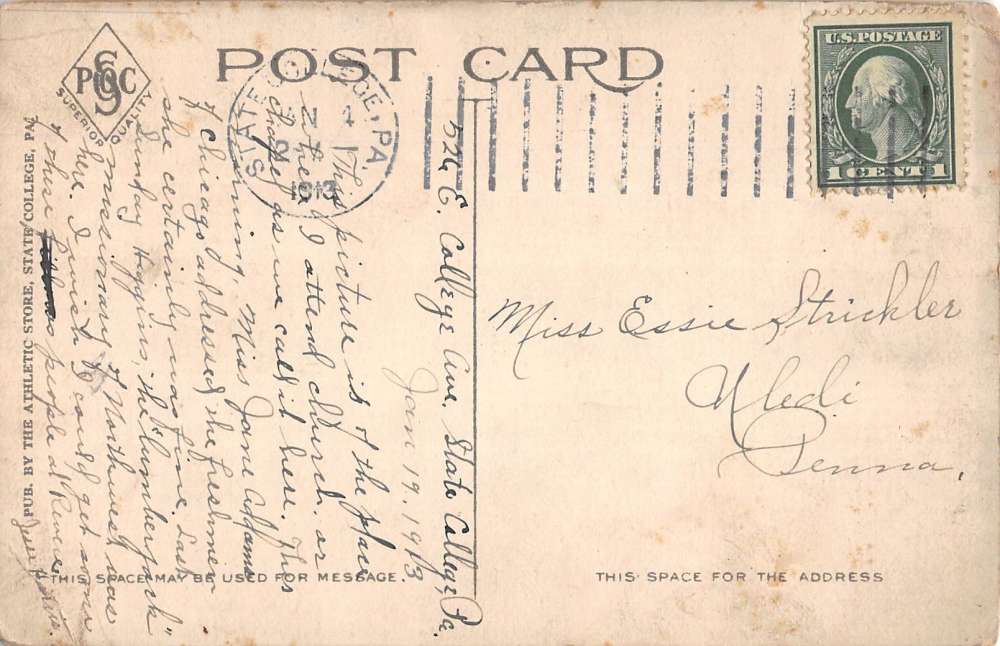 POST CARD
SPCC
SUPERIOR QUALITY
PUB. BY THE ATHLETIC STORE, STATE COLLEGE, PA.
STATE COLLEGE, PA.
JAN
1913
U.S. POSTAGE
1 CENT 1
526 E. College Ave. State College Pa.
Jan 19. 1913
This picture is of the place
where I attend church, or
Chapel as we call it here. This
evening, Miss Jane Addams
of Chicago addressed the freshmen
she certainly was fine. Last
Sunday Higgins, the "Lumberjack"
missionary of Northwest was
here. I wish I could get some
of those people at Revere.
THIS SPACE MAY BE USED FOR MESSAGE.
Miss Essie Strickler
Uledi
Penna.
THIS SPACE FOR THE ADDRESS